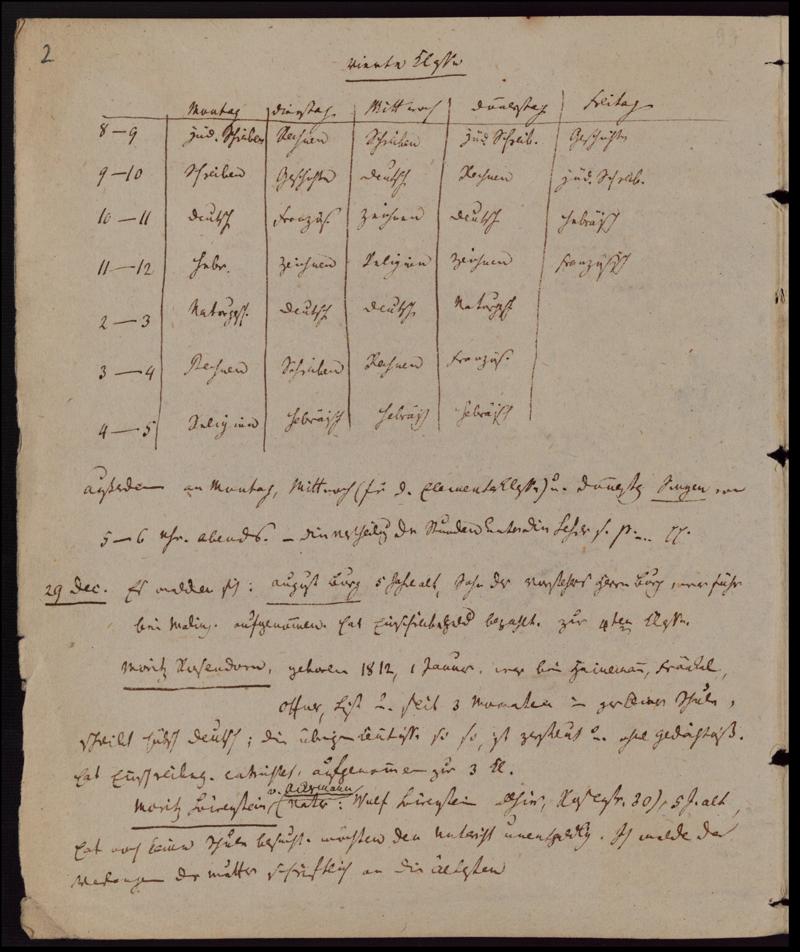 2
vierte Classe
Montag Dienstag Mittwoch Donnerstag Freitag
8–9 Jüd. Schreiben Rechnen Schreiben Jüd. Schreib. Geschichte
9–10 Schreiben Geschichte Deutsch Rechnen Jüd. Schreib.
10–11 Deutsch Französ. Zeichnen Deutsch Hebräisch
11–12 Hebr. Zeichnen Religion Zeichnen Französisch
2–3 Naturgesch. Deutsch Deutsch Naturgesch.
3–4 Rechnen Schreiben Rechnen Französ.
4–5 Religion Hebräisch Hebräisch Hebräisch
außerdem an Montag, Mittwoch (für d. Elementarklasse) u. Donnerstag Singen von
5–6 Uhr. abends. – die Vertheilung der Stunden unter die Lehrer s.
29 Dec. Es melden sich: August Burg 5 Jahr alt, Sohn des Vorstehers Herrn Burg, war früher
bei Maling. aufgenommen. hat Einschreibegeld bezahlt. zur 4ten Classe.
Moritz Rosendorn, geboren 1812, 1 Januar. war bei Heinemann, Fränkel,
List u. seit 3 Monaten in gar keiner Schule,
schreibt hübsch deutsch; die übrigen Kenntnisse so so, ist zerstreut u. ohne Gedächtniß.
hat Einschreibung. entrichtet, aufgenommen zur 3 Cl.
v. Ackermann
Moritz Löwenstein (Vater: Wulf Löwenstein 30), 5 J. alt,
hat noch keine Schule besucht. möchten den Unterricht unentgeldlich. Ich melde das
Verlangen der Mutter schriftlich an die Ältesten